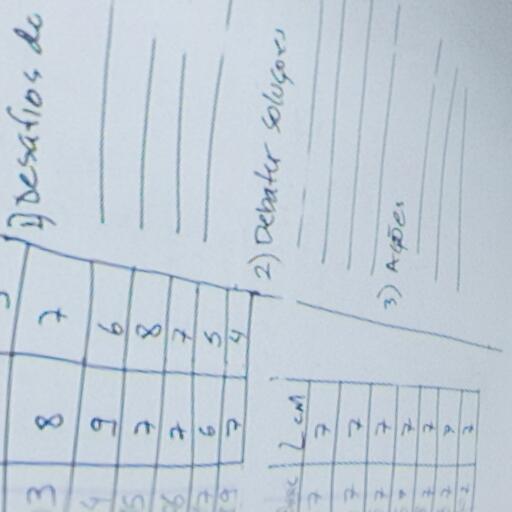 1) Desafios do
2) Debater soluções
3) Ações
3 8 7
4 9 6
5 7 8
6 7 7
7 6 5
9 7 4
LCM
7 7
7 7
7 7
7 7
7 7
7 7
7 7